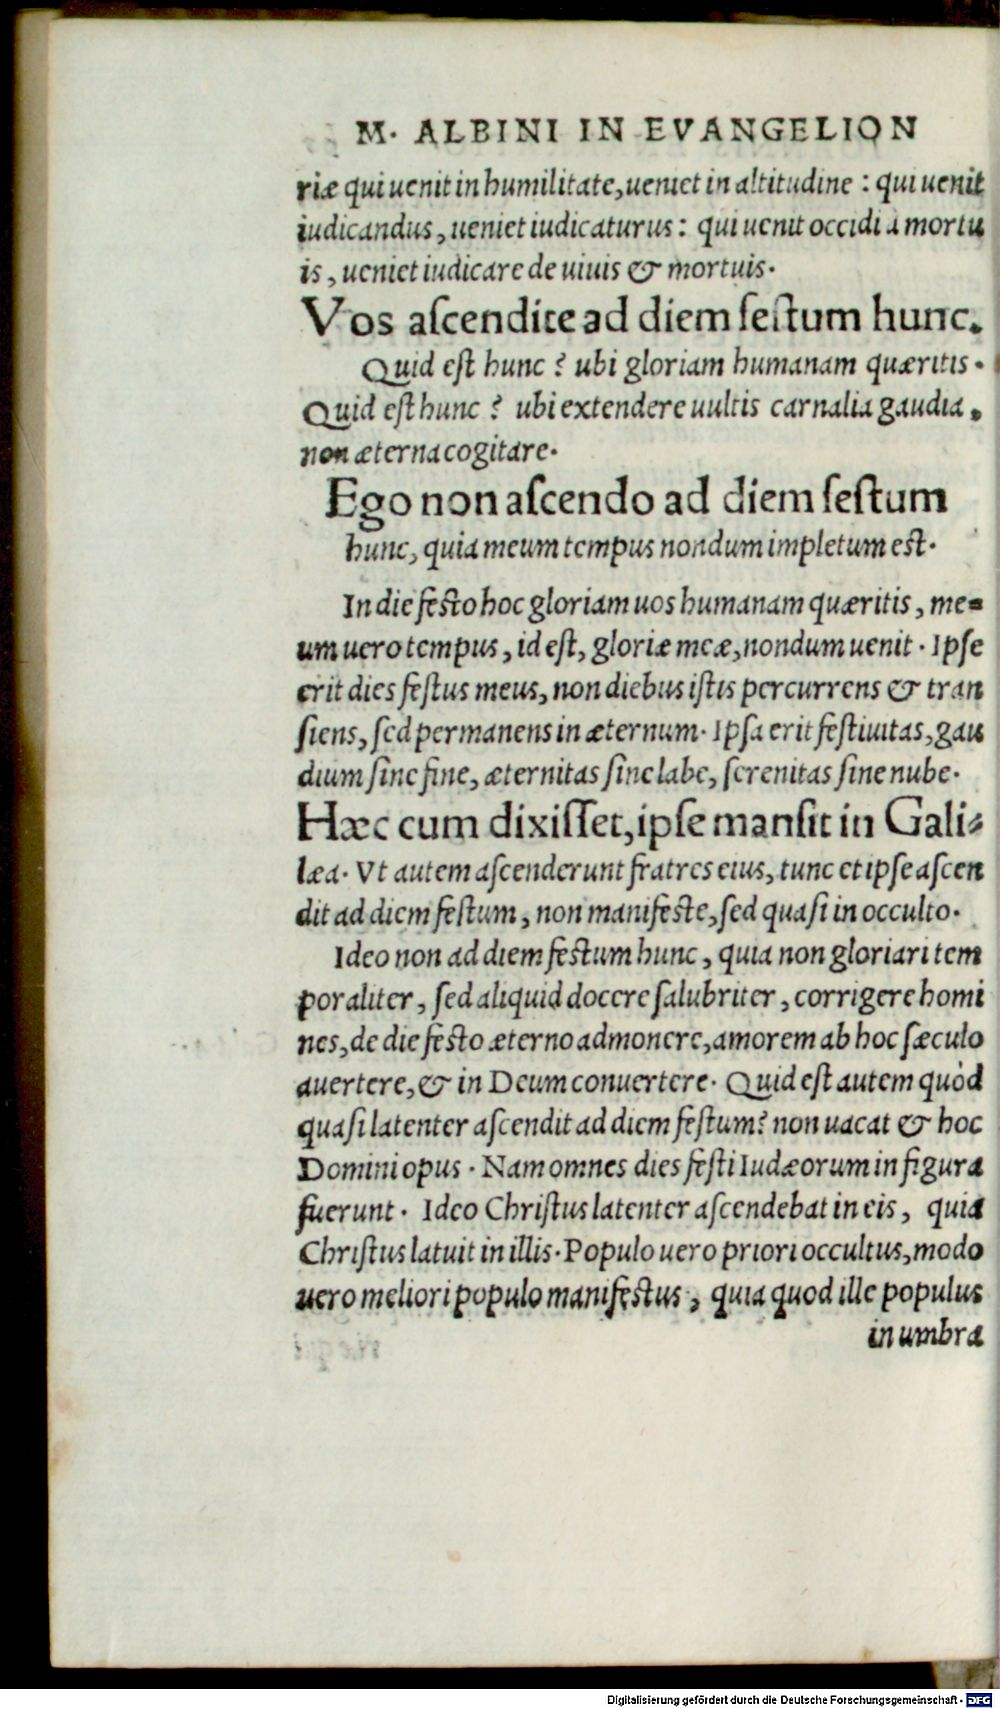 M. ALBINI IN EVANGELION
riæ qui uenit in humilitate, ueniet in altitudine : qui uenit
iudicandus, ueniet iudicaturus: qui uenit occidi a mortu
is, ueniet iudicare de uiuis & mortuis.
Vos aſcendite ad diem feſtum hunc.
Quid eſt hunc ? ubi gloriam humanam quæritis.
Quid eſt hunc ? ubi extendere uultis carnalia gaudia,
non æterna cogitare.
Ego non aſcendo ad diem feſtum
hunc, quia meum tempus nondum impletum eſt.
In die feſto hoc gloriam uos humanam quæritis, me=
um uero tempus, id eſt, gloriæ meæ, nondum uenit. Ipſe
erit dies feſtus meus, non diebus iſtis percurrens & tran
ſiens, ſed permanens in æternum. Ipſa erit feſtiuitas, gau
dium ſine fine, æternitas ſine labe, ſerenitas ſine nube.
Hæc cum dixiſſet, ipſe manſit in Gali=
læa. Vt autem aſcenderunt fratres eius, tunc et ipſe aſcen
dit ad diem feſtum, non manifeſte, ſed quaſi in occulto.
Ideo non ad diem feſtum hunc, quia non gloriari tem
poraliter, ſed aliquid docere ſalubriter, corrigere homi
nes, de die feſto æterno admonere, amorem ab hoc ſæculo
auertere, & in Deum conuertere. Quid eſt autem quòd
quaſi latenter aſcendit ad diem feſtum? non uacat & hoc
Domini opus. Nam omnes dies feſti Iudæorum in figura
fuerunt. Ideo Chriſtus latenter aſcendebat in eis, quia
Chriſtus latuit in illis. Populo uero priori occultus, modo
uero meliori populo manifeſtus, quia quod ille populus
in umbra
Digitalisierung gefördert durch die Deutsche Forschungsgemeinschaft - DFG